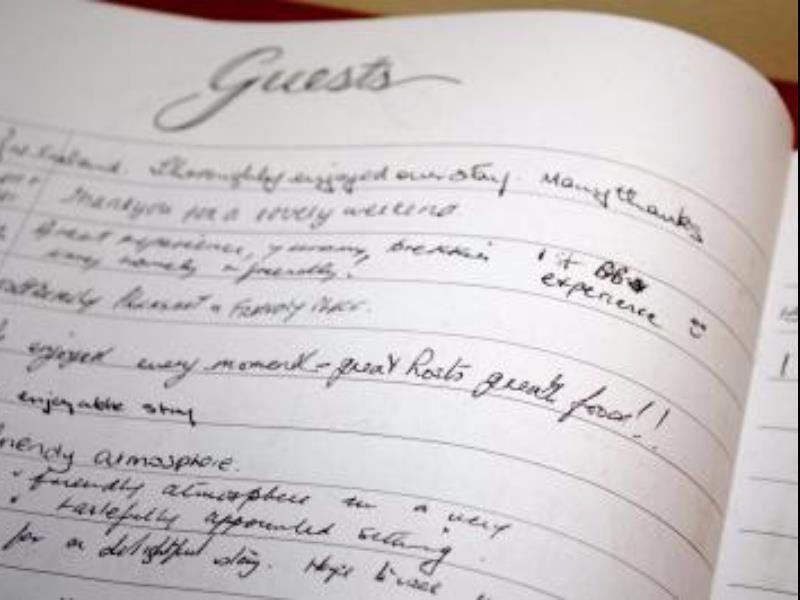 Guests
Thoroughly enjoyed our stay. Many thanks
Thankyou for a lovely weekend
Great experience, yummy brekkie 1st BB
very homely & friendly! experience
Pleasant & Friendly
enjoyed every moment - great hosts great food!!
enjoyable stay
friendly atmosphere.
friendly atmosphere in a very
tastefully appointed setting.
for a delightful stay. Hope